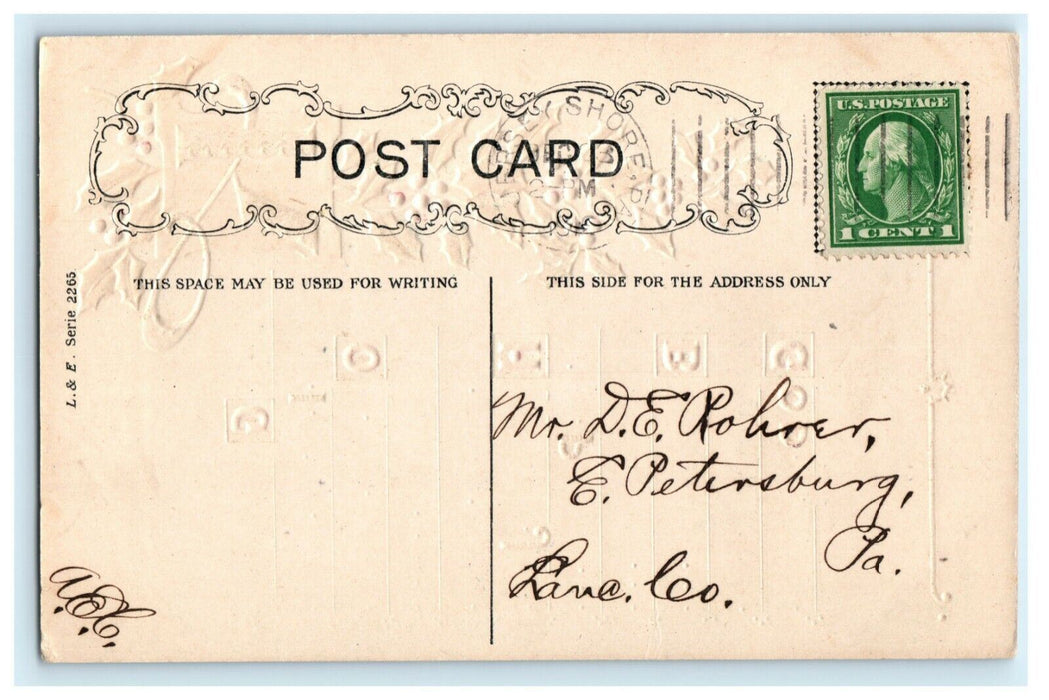 POST CARD
JERSEY SHORE, PA.
DEC 23
2-PM
U.S. POSTAGE
1 CENT 1
THIS SPACE MAY BE USED FOR WRITING
THIS SIDE FOR THE ADDRESS ONLY
L. & E. Serie 2265
Mr. D. E. Rohrer,
E. Petersburg,
Pa.
Lanc. Co.